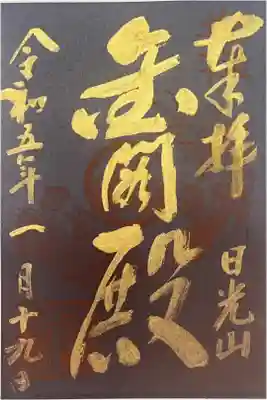 奉拝 日光山
金閣殿
令和五年一月十九日